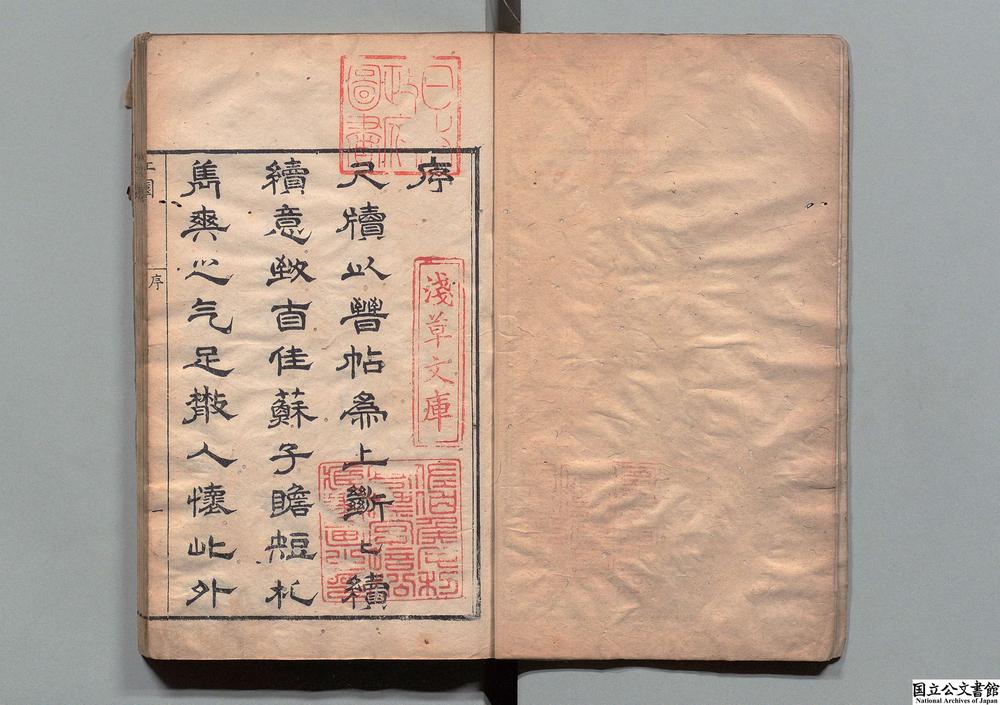 序
尺牘以晉帖為上斷〻續
續意致自佳蘇子瞻短札
雋爽之气足散人懷此外
序
一
日本
政府
圖書
淺草文庫
国立公文書館
National Archives of Japan